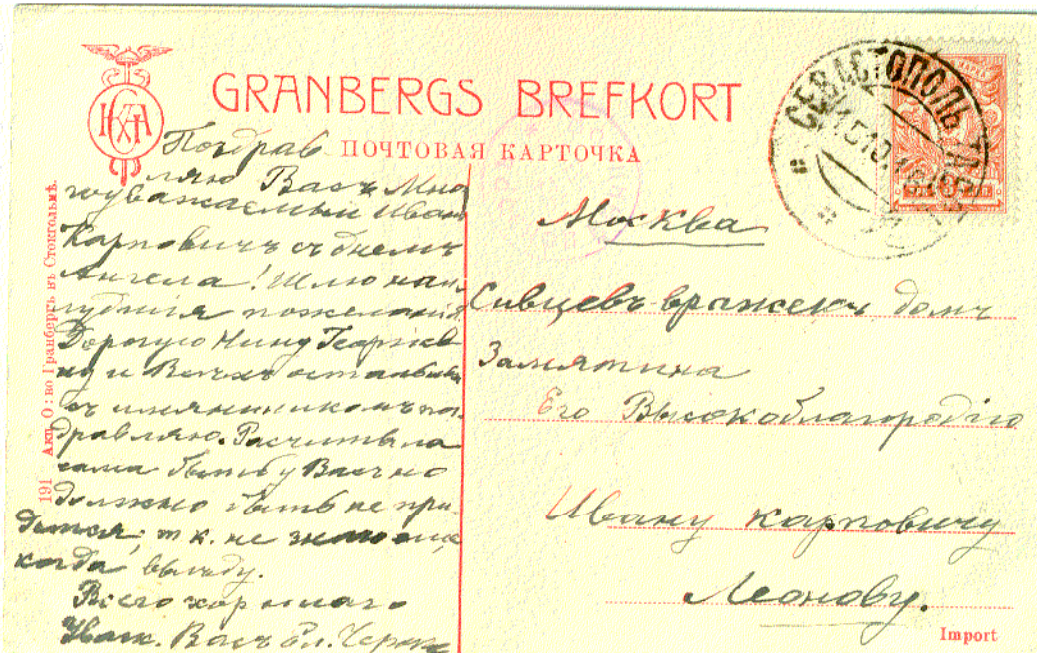 GRANBERGS BREFKORT
ПОЧТОВАЯ КАРТОЧКА
СЕВАСТОПОЛЬ
191 Акц. О: во Гранбергъ въ Стокгольмѣ.
Поздрав
ляю Васъ Мно
гоуважаемый Иванъ
Карповичъ съ днемъ
Ангела! Шлю наи
лучшія пожеланія.
Дорогую Нину Георгіев
ну и Всѣхъ остальныхъ
съ имянинникомъ по
здравляю. Расчитывала
сама быть у Васъ но
должно быть не при
дется, т. к. не знаю еще
когда выѣду.
Всего хорошаго
Уваж. Васъ Ел.
Москва
Сивцевъ-вражекъ домъ
Замятина
Его Высокоблагородію
Ивану Карповичу
Леонову.
Import